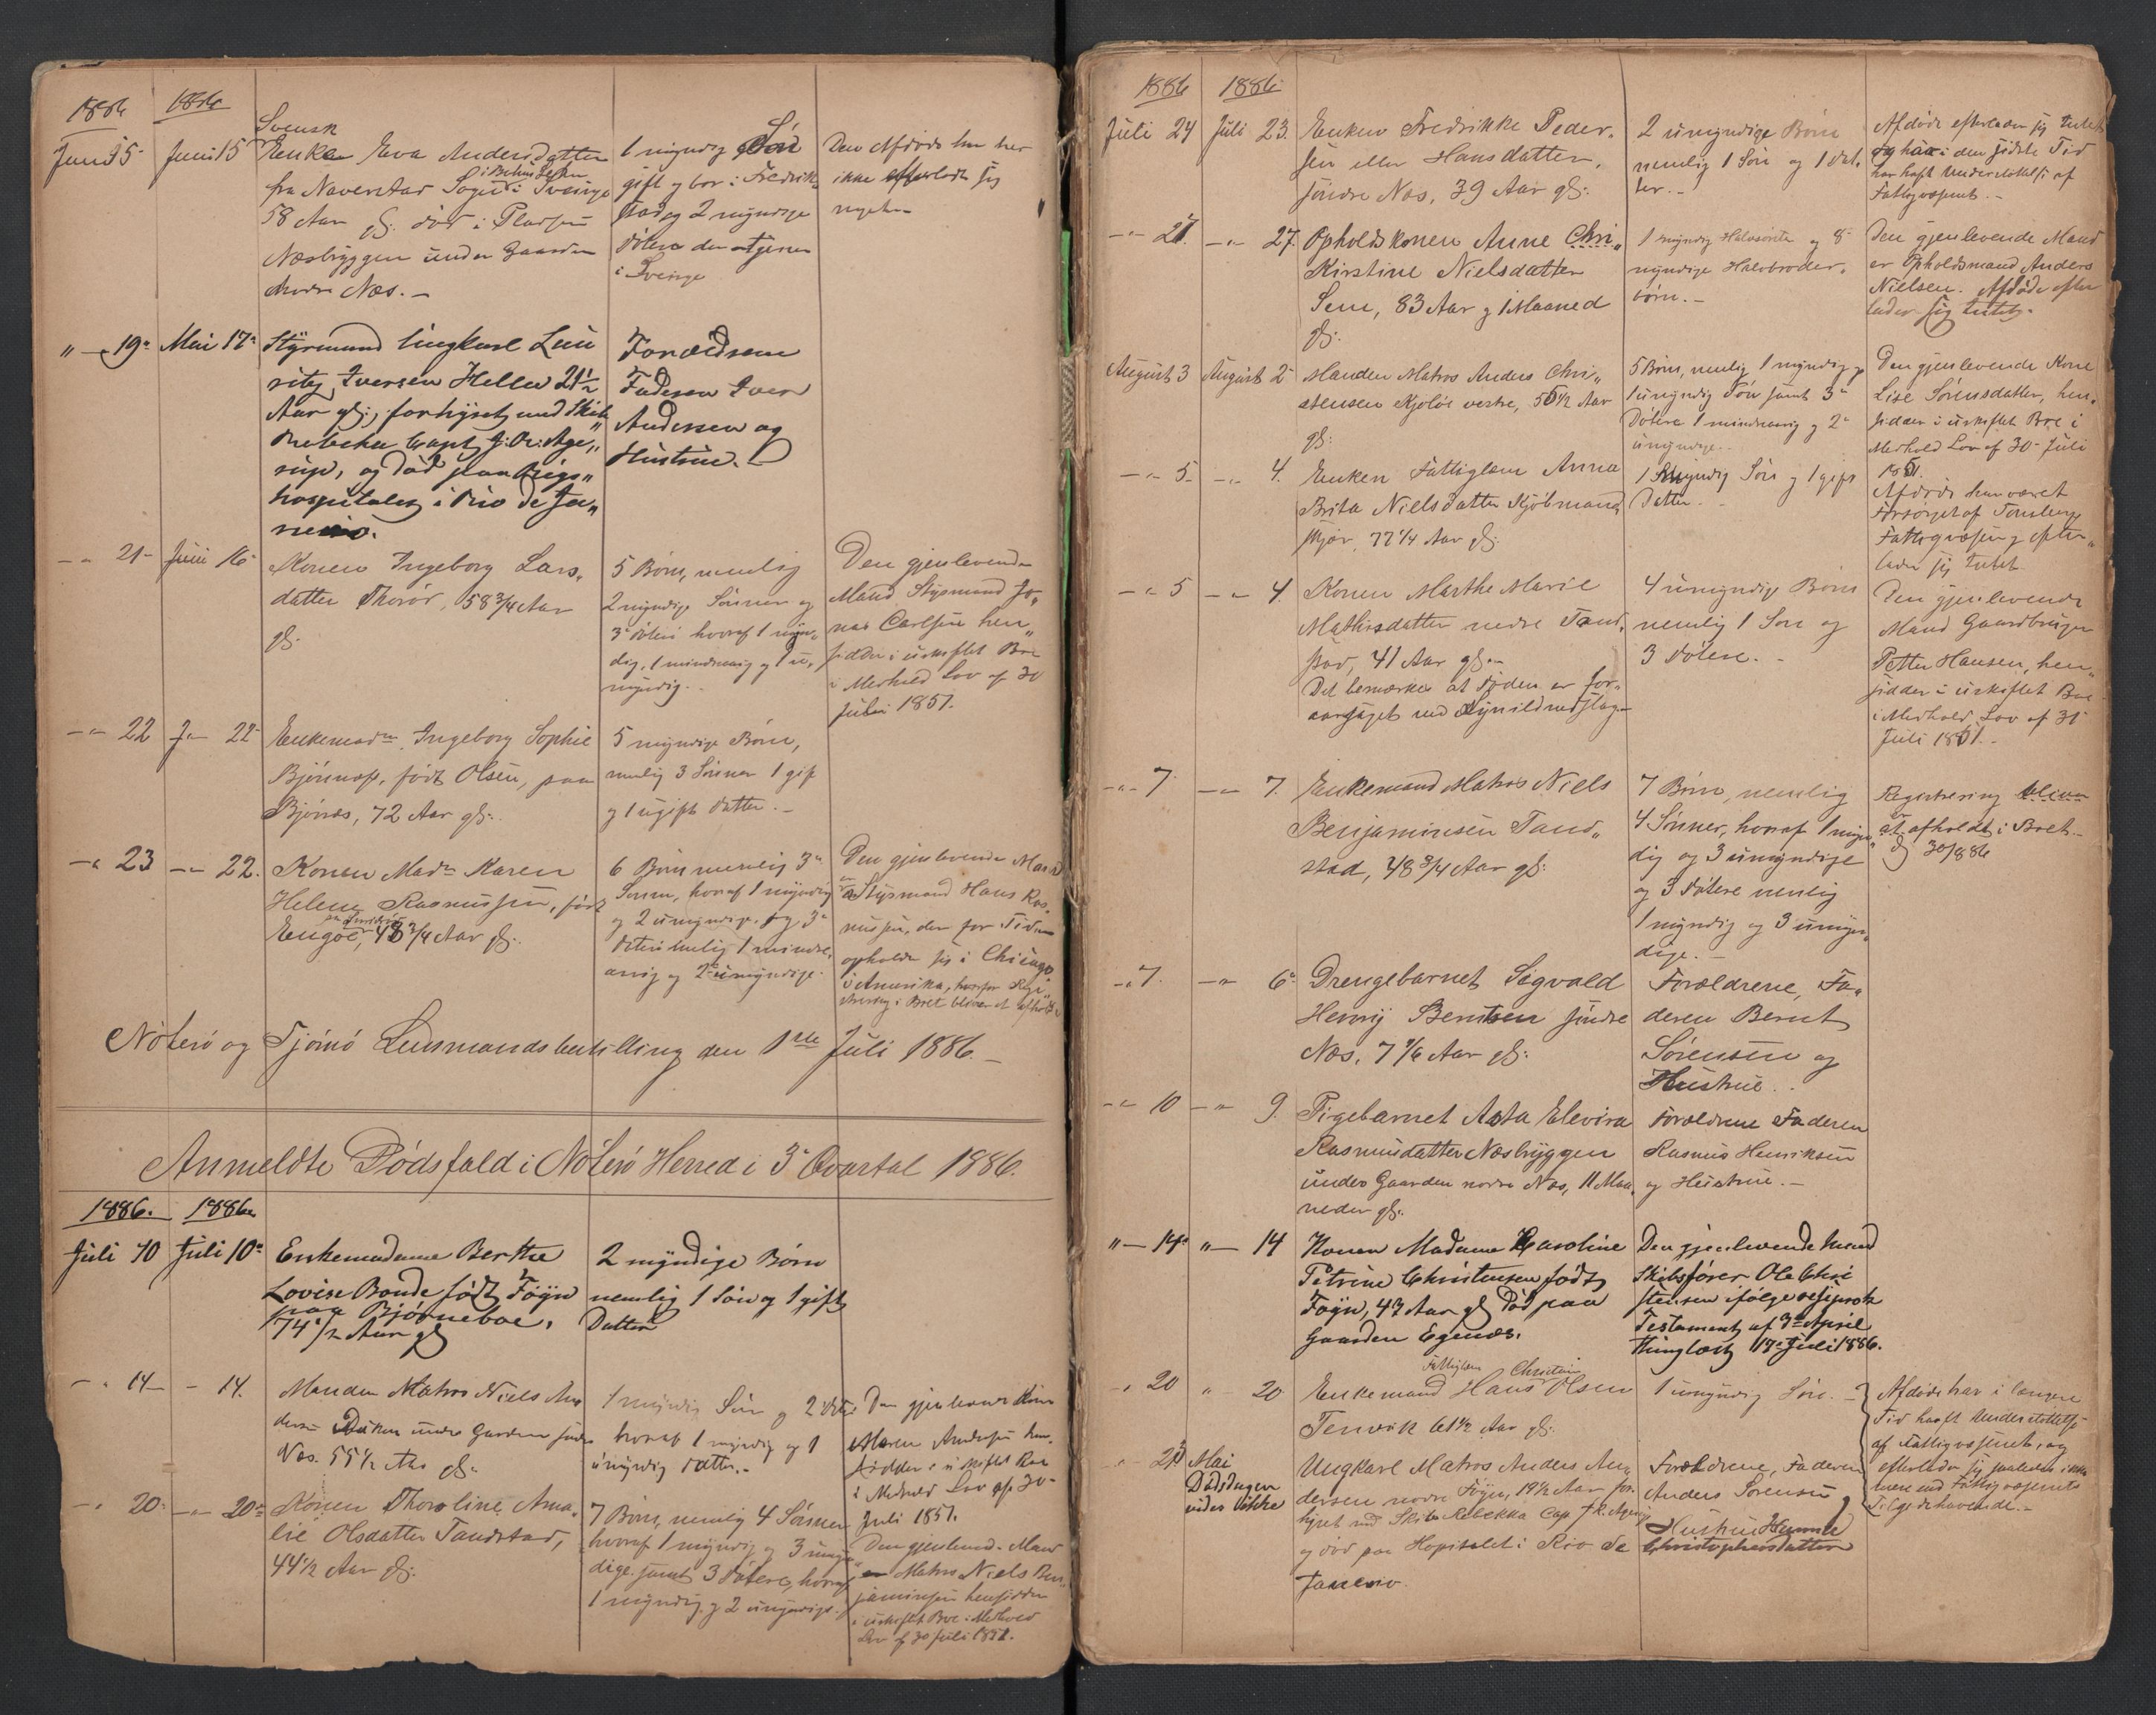 1886 1886
Juni 15 Juni 15 Svensk
Enke Eva Andersdatter
fra Naverstad Sogn i Bohus Lehn i Sverige
58 Aar gl. død i Pladsen
Næsbryggen under Gaarden
nordre Næs. —
1 myndig Søn
gift og bor i Fredrik-
stad og 2 myndige
Døtre der tjener
i Sverige
Den Afdøde har her
ikke efterladt sig
noget.
" — 19 Mai 17 Styrmand Ungkarl Lau
ritz Iversen Hella 21½
Aar gl., forhyret med Skib
Rebecka Capt J. R. Age„
rup, og død paa Rigs„
hospitalet i Rio de Ja„
neiro.
Forældrene
Faderen Iver
Andersen og
Hustrue.
— " 21 Juni 16 Konen Ingeborg Lars„
datter Thorør, 58 3/4 Aar
gl.
5 Børn, nemlig
2 myndige Sønner og
3 Døtre hvoraf 1 myn„
dig, 1 mindreaarig og 1 u„
myndig.
Den gjenlevende
Mand Styrmand Jo„
nas Carlsen hen„
sidder i uskiftet Boe
i Medhold Lov af 30
Juli 1851.
— " 22 J— 22 Enkemadm Ingeborg Sophie
Bjønnes, født Olsen, paa
Bjønnes, 72 Aar gl.
5 myndige Børn,
nemlig 3 Sønner 1 gift
og 1 ugift Datter. —
— " 23 — " 22. Konen Madm Karen
Helene Rasmussen, født
Engøe, 48 3/4 Aar gl.
6 Børn nemlig 3
Sønner, hvoraf 1 myndig
og 2 umyndige, og 3
Døtre nemlig 1 mindre„
aarig og 2 umyndige.
Den gjenlevende Mand
er Styrmand Hans Ras„
mussen, der for Tiden
opholder sig i Chicago
i Amerika, hvorfor Regi„
strering i Boet bliver at afholde
Nøterø og Tjømø Lensmandsbestilling den 1ste Juli 1886. —
Anmeldte Dødsfald i Nøterø Herred i 3 Qvartal 1886.
1886. 1886
Juli 10 Juli 10 Enkemadame Berthe
Lovise Bonde født Føyn
paa Bjørneboe,
74½ Aar gl
2 myndige Børn
nemlig 1 Søn og 1 gift
Datter
— " 14 — 14. Manden Matros Niels An
dersen Bakken under Gaarden søndre
Næs. 55½ Aar gl.
1 myndig Søn og 2 Døtre
hvoraf 1 myndig og 1
umyndig Datter. —
Den gjenlevende Kone
Maren Andersen hen„
sidder i uskiftet Boe
i Medhold Lov af 30
Juli 1851.
— " 20 — " 20 Konen Thoroline Ama„
lie Olsdatter Tandstad,
44½ Aar gl.
7 Børn, nemlig 4 Sønner
hvoraf 1 myndig og 3 umyn„
dige samt 3 Døtre, hvoraf
1 myndig og 2 umyndige.
Den gjenlevende Mand
er Matros Niels Ben„
jaminsen hensidder
i uskiftet Boe i Medhold
Lov af 30 Juli 1851.
1886 1886
Juli 24 Juli 23. Enken Fredrikke Peder„
sen eller Hansdatter,
søndre Næs, 39 Aar gl.
2 umyndige Børn
nemlig 1 Søn og 1 Dat„
ter. —
Afdøde efterlader sig Intet
og har i den sidste Tid
har havt Understøttelse af
Fattigvæsenet. —
— " 27. — " 27. Opholdskonen Anne Chri„
Kirstine Nielsdatter
Sem, 83 Aar og 1 Maaned
gl.
1 myndig Halvsøster og 8
myndige Halvbroder„
børn. —
Den gjenlevende Mand
er Opholdsmand Anders
Nielsen. Afdøde efter
lader sig Intet.
August 3 August 2 Manden Matros Anders Chri„
stensen Kjøløe vestre, 55½ Aar
gl.
5 Børn, nemlig 1 myndig og
1 umyndig Søn samt 3
Døtre 1 mindreaarig og 2
umyndige.
Den gjenlevende Kone
Lise Sørensdatter, hen„
sidder i uskiftet Boe i
Medhold Lov af 30 Juli
1851.
— " 5 — " 4. Enken Fattiglem Anna
Brita Nielsdatter Kjøbmand„
skjær, 77¼ Aar gl.
1 Myndig Søn og 1 gift
Datter.
Afdøde har været
Forsørget af Tønsberg
Fattigvæsen og efter„
lader sig Intet.
— " 5 — " 4. Konen Marthe Marie
Mathisdatter nedre Tand„
stad, 41 Aar gl. —
Det bemærkes at Døden er for„
aarsaget ved Lynildnedslag
4 umyndige Børn
nemlig 1 Søn og
3 Døtre. —
Den gjenlevende
Mand Gaardbruger
Petter Hansen, hen„
sidder i uskiftet Boe
i Medhold Lov af 30
Juli 1851. —
— " 7 — " 7. Enkemand Matros Niels
Benjaminsen Tand„
stad, 48 3/4 Aar gl.
7 Børn, nemlig
4 Sønner, hvoraf 1 myn„
dig og 3 umyndige
og 3 Døtre nemlig
1 myndig og 3 umyn„
dige. —
Registrering bliver
at afholdt i Boet
d 30/8 86
— " 7. — " 6 Drengebarnet Sigvald
Henrij Berntsen søndre
Næs, 7 1/6 Aar gl.
Forældrene, Fa„
deren Bernt
Sørensen og
Hustrue.
— " 10 — " 9. Pigebarnet Asta Elevira
Rasmusdatter Næsbryggen
under Gaarden nordre Næs, 11 Maa„
neder gl.
Forældrene Faderen
Rasmus Henriksen
og Hustrue. —
" — 14 " — 14 Konen Madame Caroline
Petrine Christensen født
Føyn, 47 Aar gl død paa
Gaarden Egenæs.
Den gjenlevende Mand
Skibsfører Ole Chri
stensen ifølge resiprok
Testament af 3 April
thinglæst 17 Juli 1886.
— " 20 " 20 Enkemand Fattiglem Hans Christian Olsen
Tenvik 61½ Aar gl.
1 umyndig Søn. —
Afdøde har i længere
Tid havt Understøttelse
af Fattigvæsenet, og
efterlader sig saaledes ikke
mere end Fattigvæsenets
Tilgodehavende. —
— " 23 Mai
Dødsdagen
vides ikke
Ungkarl Matros Anders An„
dersen nordre Føyn, 19½ Aar for„
hyret med Skib Rebekka Cap J. R. Agerup
og død paa Hospitalet i Rio de
Janeiro.
Forældrene, Faderen
Anders Sørensen og
Hustrue Hanne
Christophersdatter